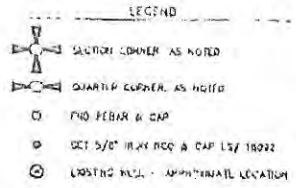 LEGEND
SECTION CORNER, AS NOTED
QUARTER CORNER, AS NOTED
FND REBAR & CAP
SET 5/8" & CAP LS/
EXISTING WELL - APPROXIMATE LOCATION